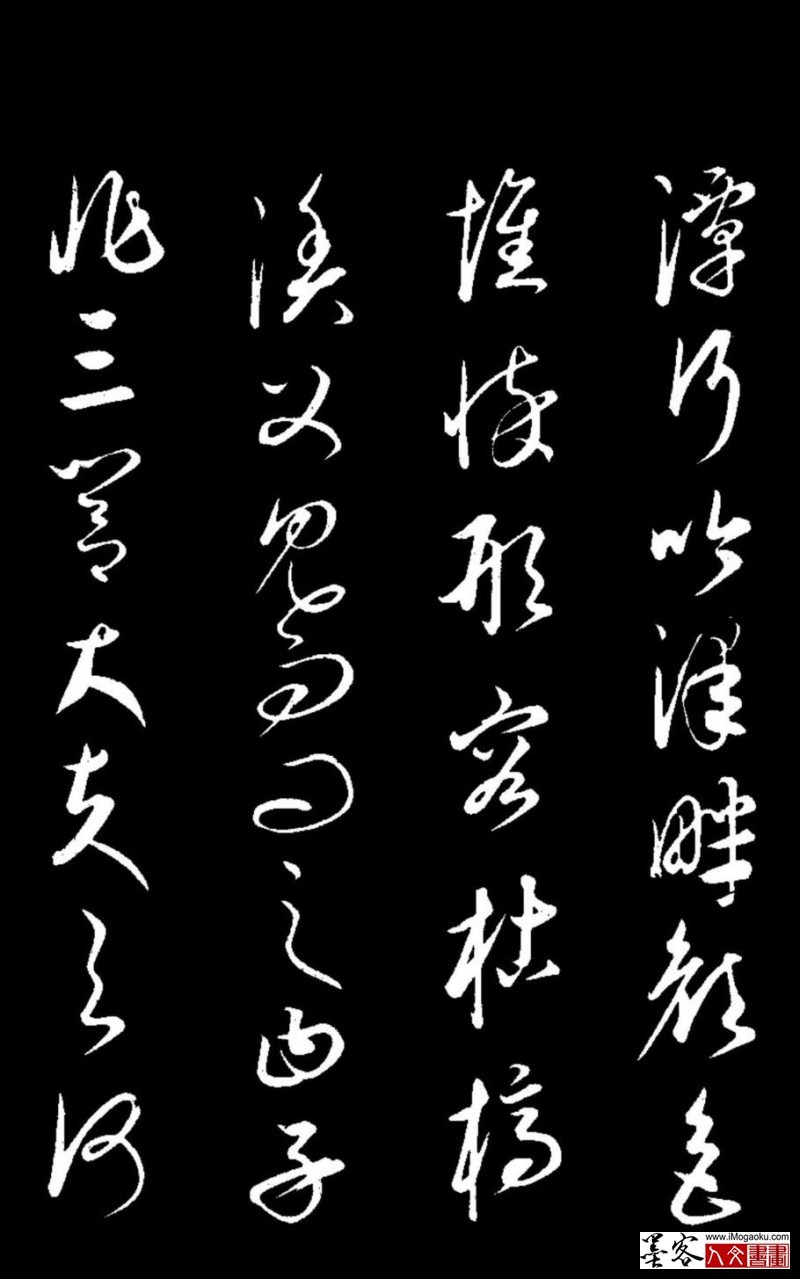 潭行吟澤畔顏色
憔悴形容枯槁
漁父見而問之曰子
非三閭大夫與何
墨客
www.iMogaoku.com
人文書畫